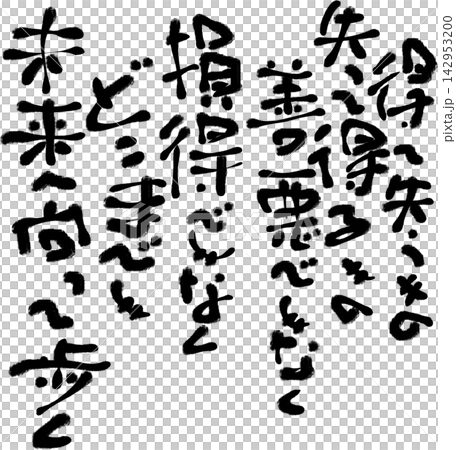 得て失うもの
失って得るもの
善の悪でもなく
損得でもなく
どこまでも
未来へ向って歩く
pixta.jp - 142953200